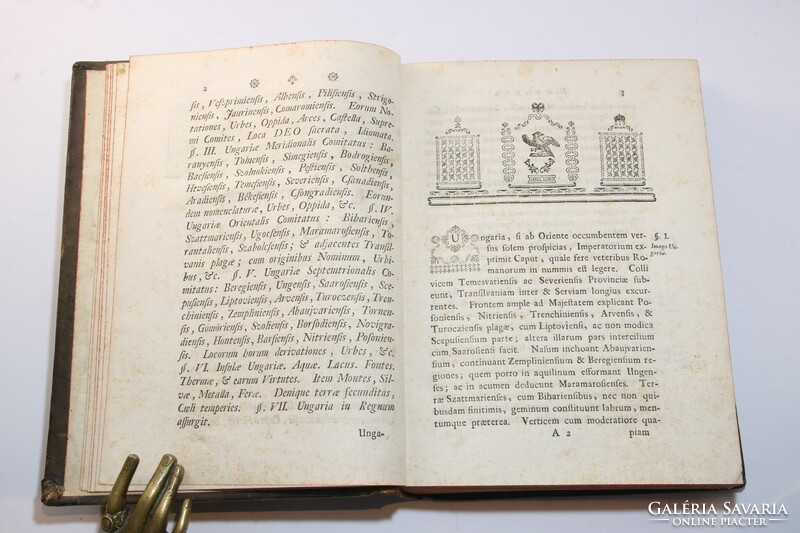 2
ſis, Veſzprimienſis, Albenſis, Piliſienſis, Strigo-
nienſis, Jaurinenſis, Comaromienſis. Eorum No-
tationes, Urbes, Oppida, Arces, Caſtella, Supre-
mi Comites, Loca DEO ſacrata, Idiomata.
§. III. Ungariæ Meridionalis Comitatus: Ba-
ranyenſis, Tolnenſis, Simegienſis, Bodrogienſis,
Bacſienſis, Szolnokienſis, Peſtienſis, Solthenſis,
Heveſienſis, Temeſienſis, Severienſis, Cſanadienſis,
Aradienſis, Békeſienſis, Cſongradienſis. Eorun-
dem nomenclaturæ, Urbes, Oppida, &c. §. IV.
Ungariæ Orientalis Comitatus: Bibarienſis,
Szattmarienſis, Ugocſenſis, Maramaroſienſis, To-
rantalienſis, Szaboleſenſis; & adjacentes Tranſil-
vanis plagæ; cum originibus Nominum, Urbi-
bus, &c. §. V. Ungariæ Septemtrionalis Co-
mitatus: Beregienſis, Ungenſis, Saaroſienſis, Sce-
puſienſis, Liptovienſis, Arvenſis, Turoczenſis, Tren-
chinienſis, Zemplinienſis, Abaujvarienſis, Tornen-
ſis, Gomörienſis, Szolienſis, Borſodienſis, Novigra-
dienſis, Hontenſis, Barſienſis, Nitrienſis, Poſonien-
ſis. Locorum horum derivationes, Urbes, &c.
§. VI. Inſulæ Ungariæ. Aquæ. Lacus. Fontes.
Thermæ, & earum Virtutes. Item Montes, Sil-
væ, Metalla, Feræ. Denique terræ fecunditas,
Cœli temperies. §. VII. Ungaria in Regnum
aſſurgit.
Unga-
3
Ungaria, ſi ab Oriente occumbentem ver-
ſus ſolem proſpicias, Imperatorium ex-
primit Caput, quale fere veteribus Ro-
manorum in nummis eſt legere. Colli
vicem Temesvarienſis ac Severienſis Provinciæ ſub-
eunt, Tranſilvaniam inter & Serviam longius excur-
rentes. Frontem ample ad Majeſtatem explicant Po-
ſonienſis, Nitrienſis, Trenchinienſis, Arvenſis, &
Turoczienſis plagæ, cum Liptovienſis, ac non modica
Scepuſienſium parte; altera illarum pars intercilium
cum Saaroſienſi facit. Naſum inchoant Abaujvarien-
ſium, continuant Zemplinienſium & Beregienſium re-
giones; quem porro in aquilinum efformant Ungen-
ſes; ac in acumen deducunt Maramaroſienſes. Ter-
ræ Szattmarienſes, cum Bibarienſibus, nec non qui-
busdam finitimis, geminum conſtituunt labrum, men-
tumque præterea. Verticem cum moderatiore qua-
A 2 piam
§. I.
Imago Un-
gariæ.
GALÉRIA SAVARIA
ONLINE PIACTÉR